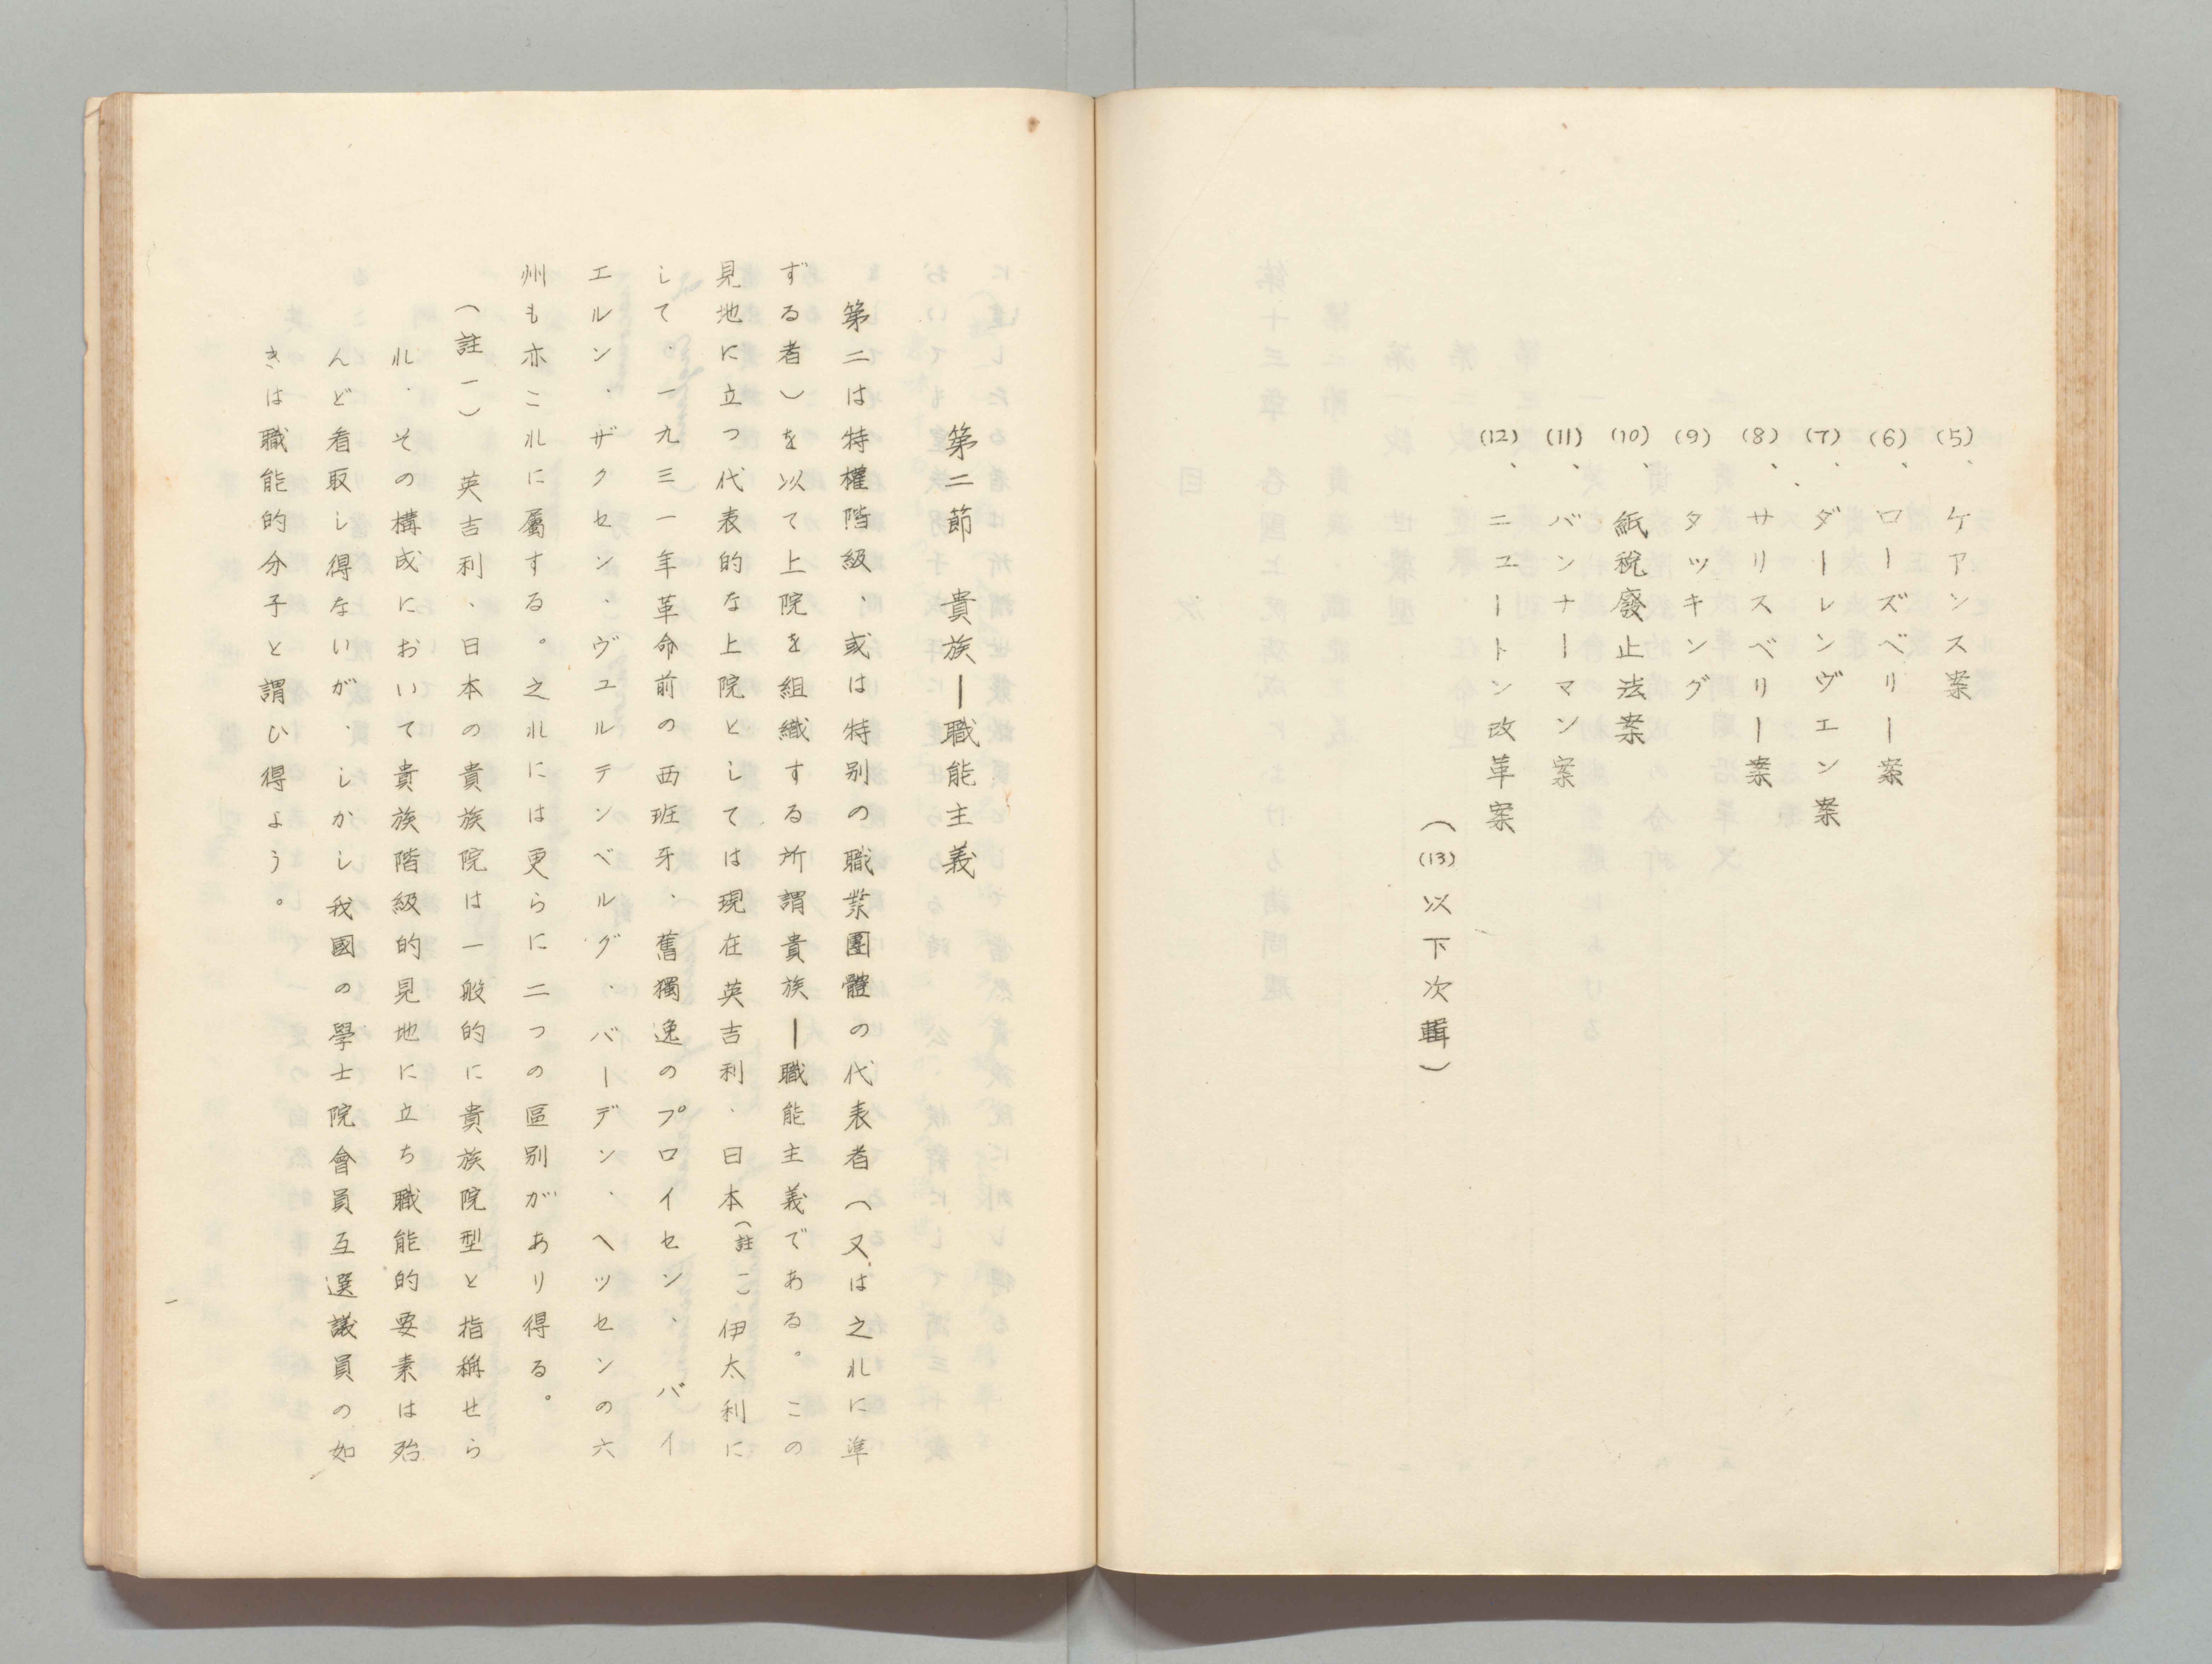 (5)、ケアンス案
(6)、ローズベリー案
(7)、ダーレンヴエン案
(8)、サリスベリー案
(9)、タッキング
(10)、紙稅廢止法案
(11)、バンナーマン案
(12)、ニユートン改革案
((13)以下次輯)
第二節 貴族―職能主義
第二は特權階級、或は特别の職業團體の代表者(又は之れに準
ずる者)を以て上院を組織する所謂貴族―職能主義である。この
見地に立つ代表的な上院としては現在英吉利、日本(註一)伊太利に
して、一九三一年革命前の西班牙、舊獨逸のプロイセン、バイ
エルン、ザクセン、ヴユルテンベルグ、バーデン、ヘッセンの六
州も亦これに屬する。之れには更らに二つの區别があり得る。
(註一) 英吉利、日本の貴族院は一般的に貴族院型と指稱せら
れ、その構成において貴族階級的見地に立ち職能的要素は殆
んど看取し得ないが、しかし我國の學士院會員互選議員の如
きは職能的分子と謂ひ得よう。